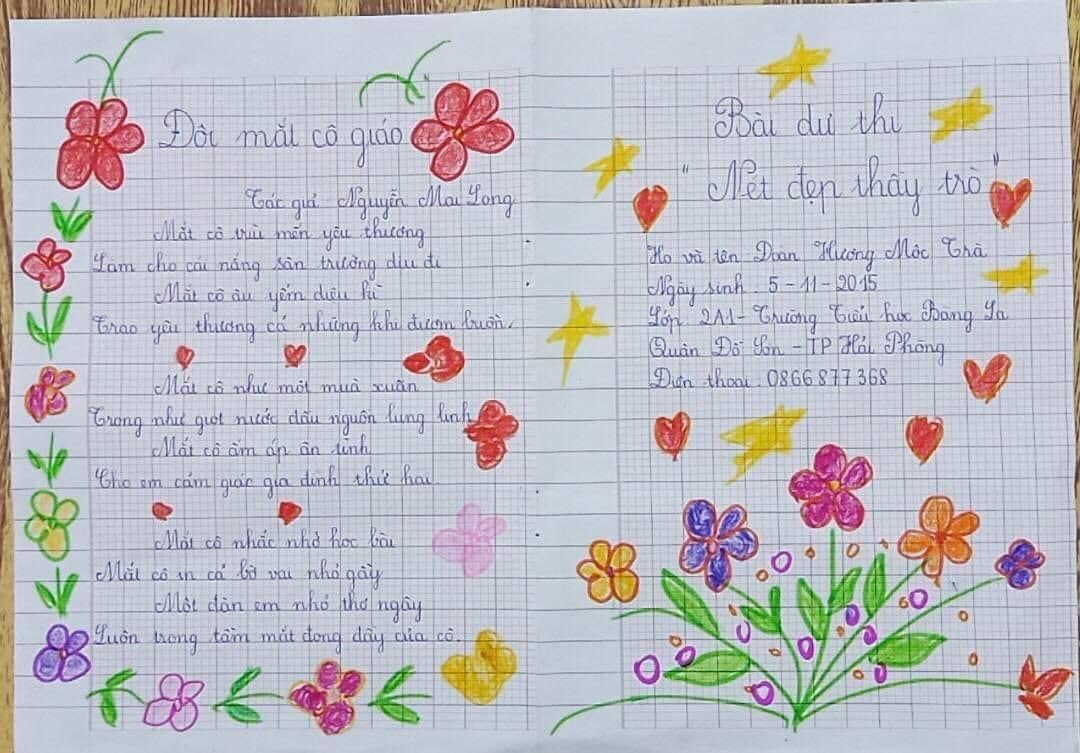 Đôi mắt cô giáo
Tác giả: Nguyễn Mai Long
Mắt cô trìu mến yêu thương
Làm cho cái nắng sân trường dịu đi
Mắt cô âu yếm diệu kì
Trao yêu thương cả những khi đượm buồn.
Mắt cô như một muà xuân
Trong như giọt nước đầu nguồn lung linh
Mắt cô ấm áp ân tình
Cho em cảm giác gia đình thứ hai
Mắt cô nhắc nhở học bài
Mắt cô in cả bờ vai nhỏ gầy
Một đàn em nhỏ thơ ngây
Luôn trong tầm mắt đong đầy của cô.
Bài dự thi
"Nét đẹp thầy trò"
Họ và tên Đoàn Hương Mộc Trà
Ngày sinh: 5-11-2015
Lớp 2A1-Trường Tiểu học Bàng La
Quận Đồ Sơn - TP Hải Phòng
Điện thoại: 0866877368